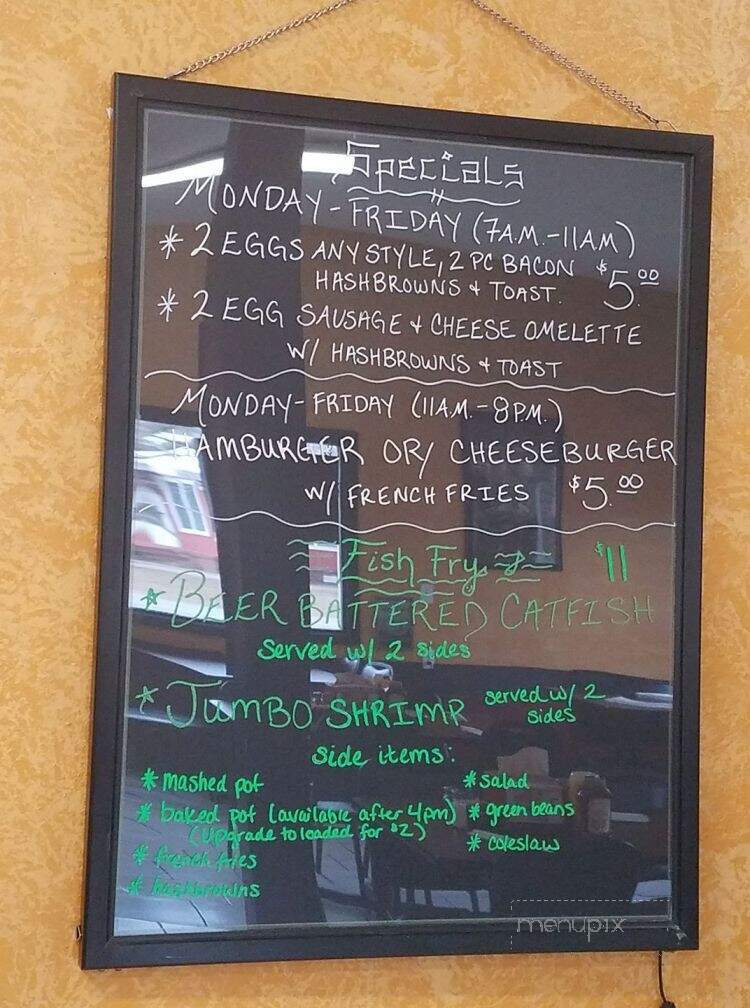 Specials
MONDAY - FRIDAY (7A.M. - 11AM)
* 2 EGGS ANY STYLE, 2 PC BACON $5.00
HASHBROWNS & TOAST.
* 2 EGG SAUSAGE & CHEESE OMELETTE
W/ HASHBROWNS & TOAST
MONDAY - FRIDAY (11A.M. - 8P.M.)
HAMBURGER OR/ CHEESEBURGER
W/ FRENCH FRIES $5.00
Fish Fry $11
* BEER BATTERED CATFISH
Served w/ 2 sides
* JUMBO SHRIMP served w/ 2
sides
Side items:
* mashed pot
* baked pot (available after 4pm)
(Upgrade to loaded for $2)
* french fries
* hashbrowns
* salad
* green beans
* coleslaw
menupix